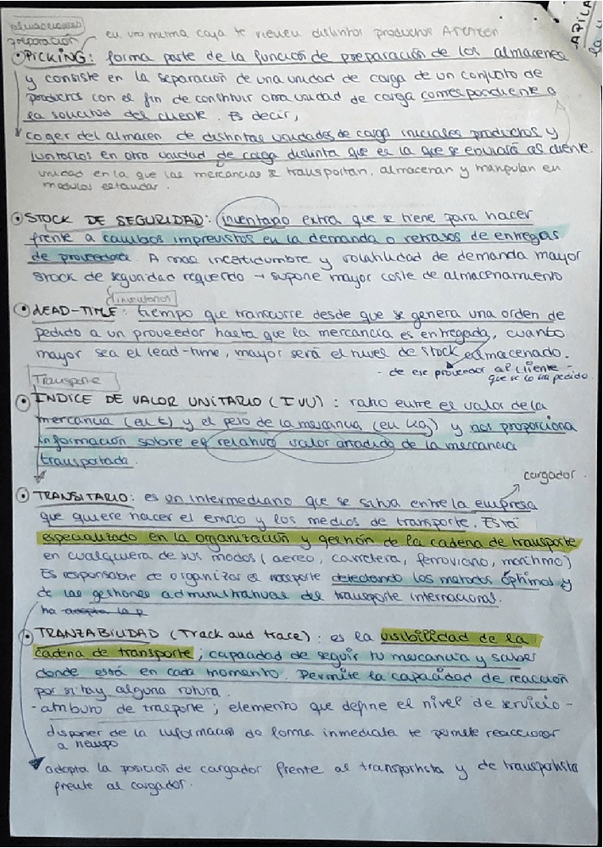 almacenaje
preparación en una misma caja te vienen distintos productos
PICKING: forma parte de la función de preparación de los almacenes
y consiste en la separación de una unidad de carga de un conjunto de
productos con el fin de constituir otra unidad de carga correspondiente a
la solicitud del cliente. Es decir,
coger del almacen de distintas unidades de carga iniciales productos y
juntarlos en otra unidad de carga distinta que es la que se enviará al cliente.
unidad en la que las mercancías se transportan, almacenan y manipulan en
modulos estandar.
STOCK DE SEGURIDAD: inventario extra que se tiene para hacer
frente a cambios imprevistos en la demanda o retrasos de entregas
de proveedora A mas incertidumbre y volatilidad de demanda mayor
stock de seguridad requerido → supone mayor coste de almacenamiento
inventarios
LEAD-TIME: tiempo que transcurre desde que se genera una orden de
pedido a un proveedor hasta que la mercancia es entregada, cuanto
mayor sea el lead-time, mayor será el nivel de stock almacenado.
- de ese proveedor al cliente -
que se lo ha pedido.
Transporte
INDICE DE VALOR UNITARIO (IVU): ratio entre el valor de la
mercancia (en €) y el peso de la mercancia (en kg) y nos proporciona
información sobre el relativo valor añadido de la mercancia
transportada.
cargador.
TRANSITARIO: es un intermediario que se situa entre la empresa
que quiere hacer el envio y los medios de transporte. Está
especializado en la organización y gestión de la cadena de transporte
en cualquiera de sus modos (aereo, carretera, ferroviario, maritimo)
Es responsable de organizar el transporte detectando los metodos óptimos y
de las gestiones administrativas del transporte internacional.
ha adopta la p
TRANZABILIDAD (Track and trace): es la visibilidad de la
cadena de transporte; capacidad de seguir tu mercancia y saber
donde está en cada momento. Permite la capacidad de reacción
por si hay alguna rotura.
- atributo de trasporte; elemento que define el nivel de servicio -
disponer de la informacion de forma inmediata te permite reaccionar
a tiempo
adopta la posición de cargador frente al transportista y de transportista
frente al cargador.